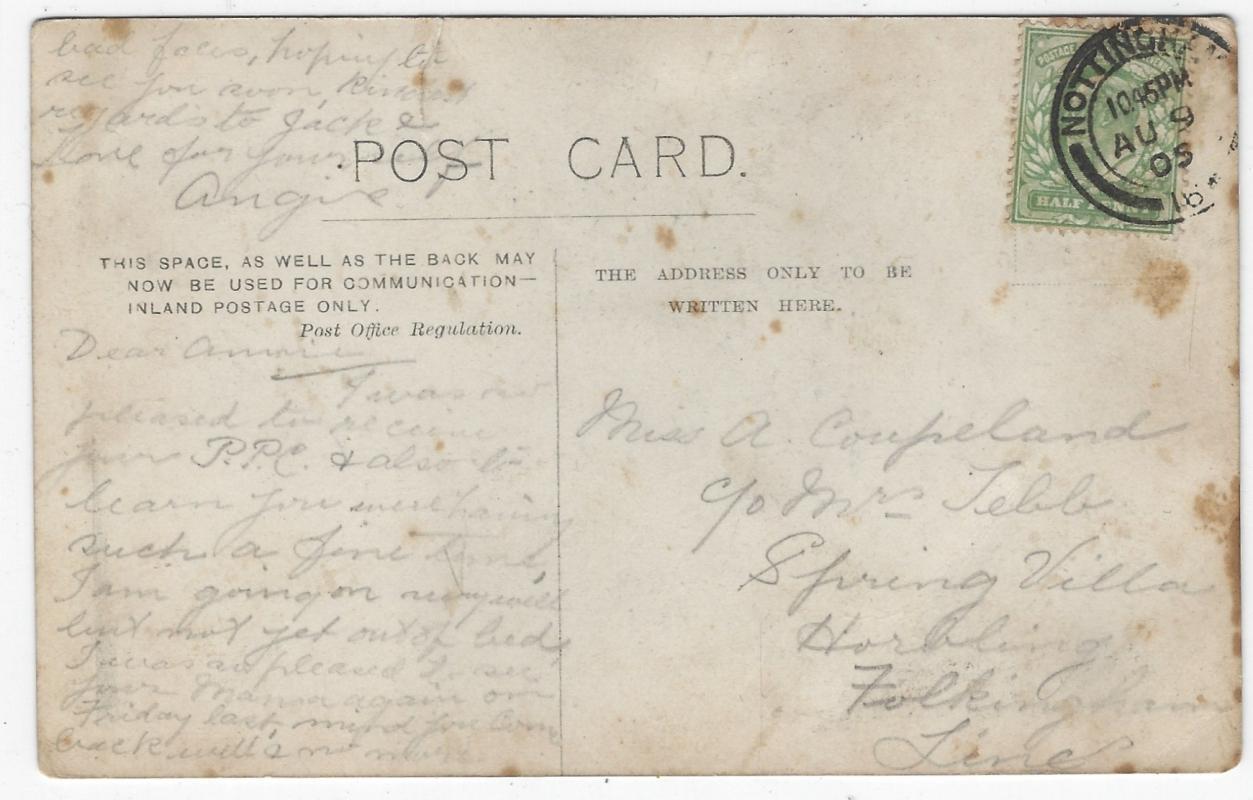 bad faces, hoping to
see you soon, kindest
regards to Jack &
Love for yourself
Angie
POST CARD.
POSTAGE
NOTTINGHAM
10.45PM
AU 9
05
16
HALFPENNY
THIS SPACE, AS WELL AS THE BACK MAY
NOW BE USED FOR COMMUNICATION—
INLAND POSTAGE ONLY.
Post Office Regulation.
THE ADDRESS ONLY TO BE
WRITTEN HERE.
Dear Annie
I was so
pleased to receive
your P.P.C. & also to
learn you were having
such a fine time,
I am going on very well
but not yet out of bed,
I was so pleased to see
your Mama again on
Friday last, mind you come
back well & no more
Miss A. Coupeland
c/o Mrs Tebb
Spring Villa
Horbling
Folkingham
Linc